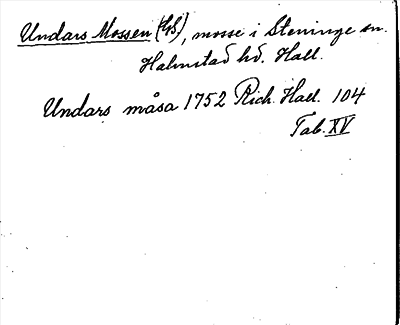 Undars Mossen (GS), mosse i Steninge sn.
Halmstad hd. Hall.
Undars måsa 1752 Rich. Hall. 104
Tab. XV